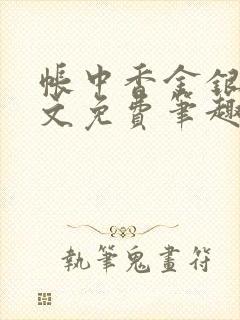 帳中香金銀
文免費筆趣
執筆鬼畫符